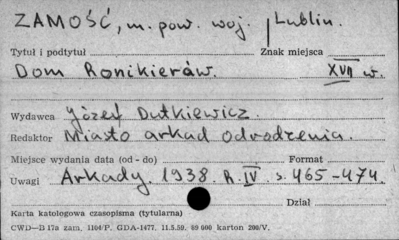 ZAMOŚĆ, m. pow. woj. Lublin.
Tytuł i podtytuł Znak miejsca
Dom Ronikierów. XVII w.
Wydawca Józef Dutkiewicz.
Redaktor Miasto arkad odrodzenia.
Miejsce wydania data (od - do) Format
Uwagi Arkady. 1938. R. IV s. 465-474.
Dział
Karta katalogowa czasopisma (tytularna)
CWD—B 17a zam. 1104/P. GDA-1477. 11.5.59. 89 000 karton 200/V.